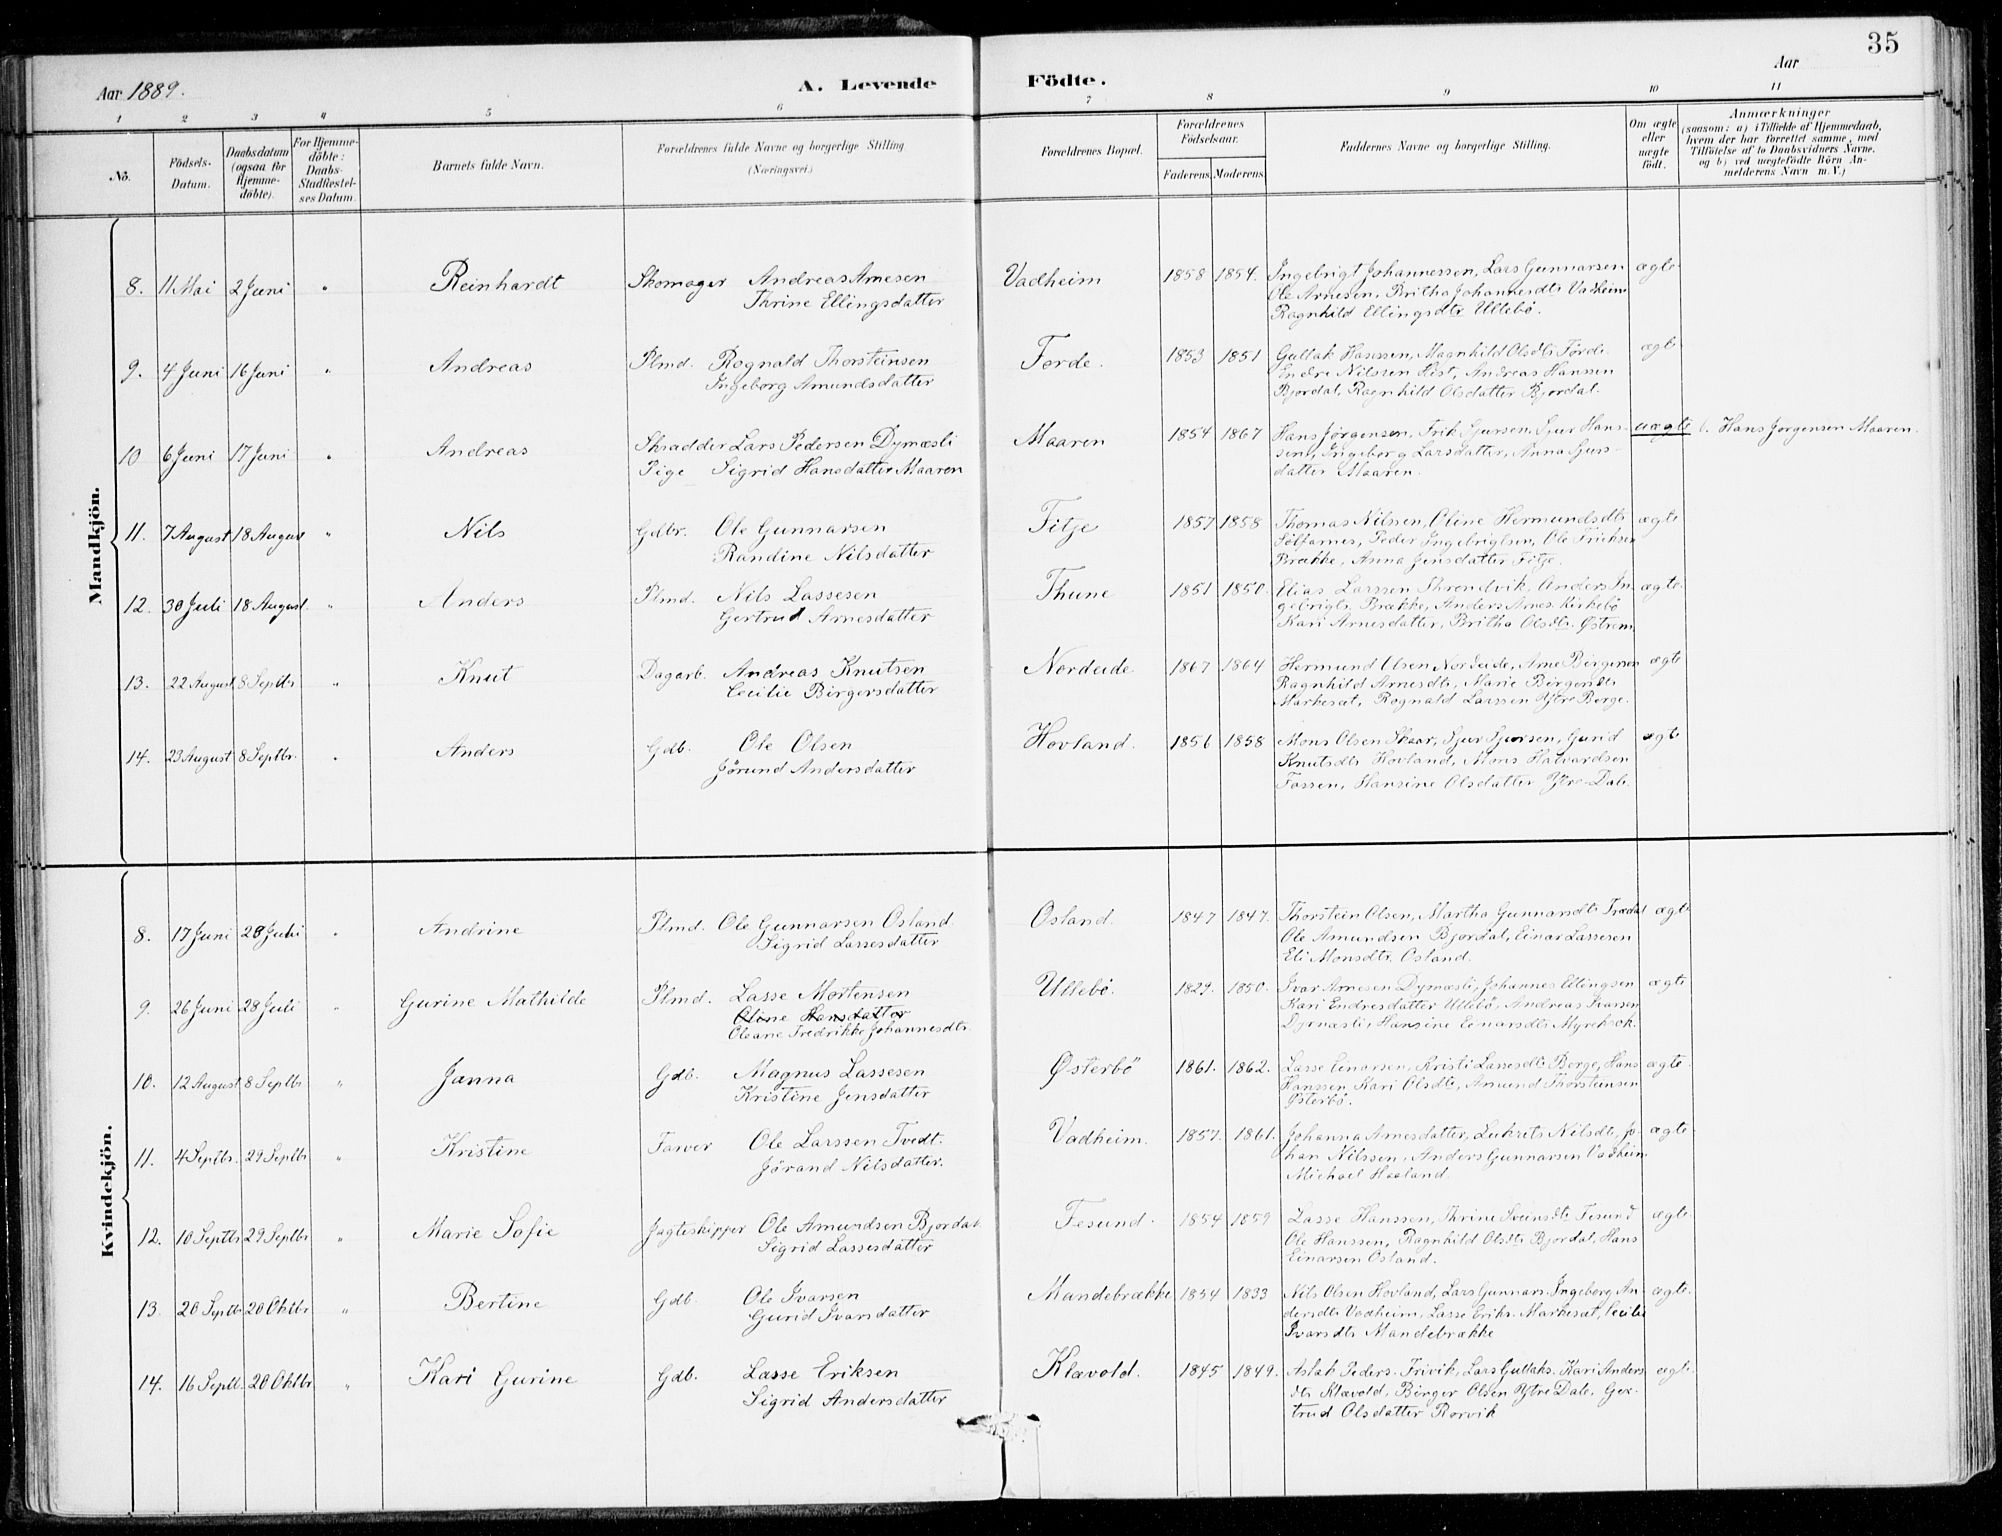 35
Aar 1889.
A. Levende Födte.
Aar
1 2 3 4 5 6 7 8 9 10 11
No.
Födsels-Datum.
Daabsdatum (ogsaa för Hjemmedöbte).
For Hjemmedöbte: Daabs-Stadfæstelses Datum.
Barnets fulde Navn.
Forældrenes fulde Navne og borgerlige Stilling (Næringsvei.)
Forældrenes Bopæl.
Forældrenes Födselsaar.
Faderens. Moderens.
Faddernes Navne og borgerlige Stilling.
Om ægte eller uægte födt.
Anmærkninger
(saasom: a) i Tilfælde af Hjemmedaab, hvem der har forrettet samme, med Tilföielse af to Daabsvidners Navne, og b) ved uægtefödte Börn Anmelderens Navn m. V.)
Mandkjön.
8. 11 Mai 2 Juni " Reinhardt Skomager Andreas Arnesen Vadheim 1858 1854. Ingebrigt Johannessen, Lars Gunnarsen ægte
Thrine Ellingsdatter Ole Arnesen, Britha Johannesdtr Vadheim
Ragnhild Ellingsdtr Ullebö.
9. 4 Juni 16 Juni " Andreas Plmd. Rognald Thorsteinsen Førde. 1853 1851 Gullak Hanssen, Magnhild Olsdtr Førde ægte
Ingeborg Amundsdatter Endre Nilssen Hist, Andreas Hansen
Bjordal, Ragnhild Olsdatter Bjordal.
10 6 Juni 17 Juni " Andreas Skradder Lars Pedersen Dymæsli Maaren 1854 1867 Hans Jørgensen, Erik Sjursen, Sjur Hans- uægte b. Hans Jørgensen Maaren.
Pige Sigrid Hansdatter Maaren sen, Ingeborg Larsdatter, Anna Sjurs-
datter Maaren.
11. 7 August 18 August " Nils Gdbr. Ole Gunnarsen Fitje 1857 1858 Thomas Nilssen, Oline Hermundsdtr ægte
Randine Nilsdatter Sølfarnes, Peder Ingebrigtsen, Ole Eriksen
Brække, Anna Jensdatter Fitje.
12. 30 Juli 18 August. " Anders Plmd. Nils Lassesen Thune 1851 1850. Elias Larssen Strendvik, Anders In- ægte.
Gertrud Arnesdatter gebrigts. Brække, Anders Arnes. Kirkebö
Kari Arnesdatter, Britha Olsdtr. Østrem.
13. 22 August 8 Septbr " Knut Dagarb. Andreas Knutsen Nordeide 1867 1864 Hermund Olsen Nordeide, Arne Birgersen ægte
Cecilie Birgersdatter Ragnhild Arnesdtr, Marie Birgersdtr
Markesæt, Rognald Larssen Ytre Berge.
14. 23 August 8 Septbr. " Anders Gdb. Ole Olsen Hovland. 1856 1858 Mons Olsen Skaar, Sjur Sjursen, Gurid ægte
Jörund Andersdatter Knutsdtr Hovland, Mons Halvardsen
Fossen, Hansine Olsdatter Ytre-Dale.
Kvindekjön.
8. 17 Juni 28 Juli " Andrine Plmd. Ole Gunnarsen Osland Osland. 1847 1847. Thorstein Olsen, Martha Gunnarsdtr Trædal ægte
Sigrid Lassesdatter Ole Amundsen Bjordal, Einar Lassesen
Eli Monsdtr. Osland.
9. 26 Juni 28 Juli " Gurine Mathilde Plmd. Lasse Mortensen Ullebö. 1829. 1850. Ivar Arnesen Dymæsli, Johannes Ellingsen ægte
Oline Hansdatter Kari Endresdatter Ullebö, Andreas Ivarsen
Oleane Fredrikke Johannesdtr. Dymæsli, Hansine Einarsdtr Myrekrok.
10. 12 August 8 Septbr " Janna Gdb. Magnus Lassesen Østerbö 1861. 1862. Lasse Einarsen, Kristi Lassesdtr Berge, Hans ægte
Kristine Jensdatter Hanssen, Kari Olsdtr, Amund Thorsteinsen
Østerbö.
11. 4 Septbr. 29 Septbr " Kristine Farver Ole Larssen Tvedt. Vadheim. 1857. 1861. Johanna Arnesdatter, Lukrets Nilsdtr, Jo- ægte
Jörand Nilsdatter. han Nilssen, Anders Gunnarsen Vadheim
Michael Haaland.
12. 10 Septbr 29 Septbr " Marie Sofie Jagteskipper Ole Amundsen Bjordal Fesund. 1854 1859 Lasse Hanssen, Thrine Sveinsdtr Fesund ægte.
Sigrid Lassesdatter Ole Hanssen, Ragnhild Olsdtr Bjordal, Hans
Einarsen Osland.
13. 20 Septbr 20 Oktbr " Bertine Gdb. Ole Ivarsen Mandebrække 1854 1833 Nils Olsen Hovland, Lars Gunnars. Ingeborg An- ægte.
Gurid Ivarsdatter dersdtr Vadheim, Lasse Eriks. Markesæt, Cecilie
Ivarsdtr Mandebrække
14. 16 Septb. 20 Oktbr " Kari Gurine Gdb. Lasse Eriksen Klævold. 1845 1849. Aslak Peders. Frivik, Lars Gullaks. Kari Anders ægte
Sigrid Andersdatter dtr Klævold, Birger Olsen Ytre Dale, Ger-
trud Olsdatter Rørvik